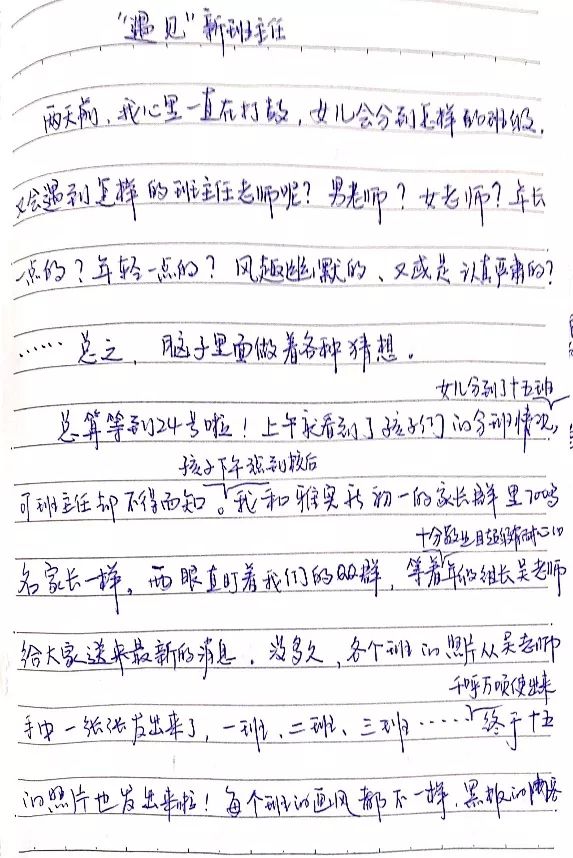 “遇见”新班主任
两天前，我心里一直在打鼓，女儿会分到怎样的班级，
又会遇到怎样的班主任老师呢？男老师？女老师？年长
一点的？年轻一点的？风趣幽默的、又或是认真严肃的？
……总之，脑子里面做着各种猜想。
女儿分到了十五班
总算等到24号啦！上午家看到了孩子们的分班情况，
孩子下午报到校后
可班主任却不得而知。我和雅实新初一的家长群里700多
十分敬业且超级有耐心的
名家长一样，两眼直盯着我们的QQ群，等着年级组长吴老师
给大家送来最新的消息。没多久，各个班的照片从吴老师
千呼万唤使出来
手中一张张发出来了，一班、二班、三班……终于十五
的照片也发出来啦！每个班的画风都不一样，黑板的内容